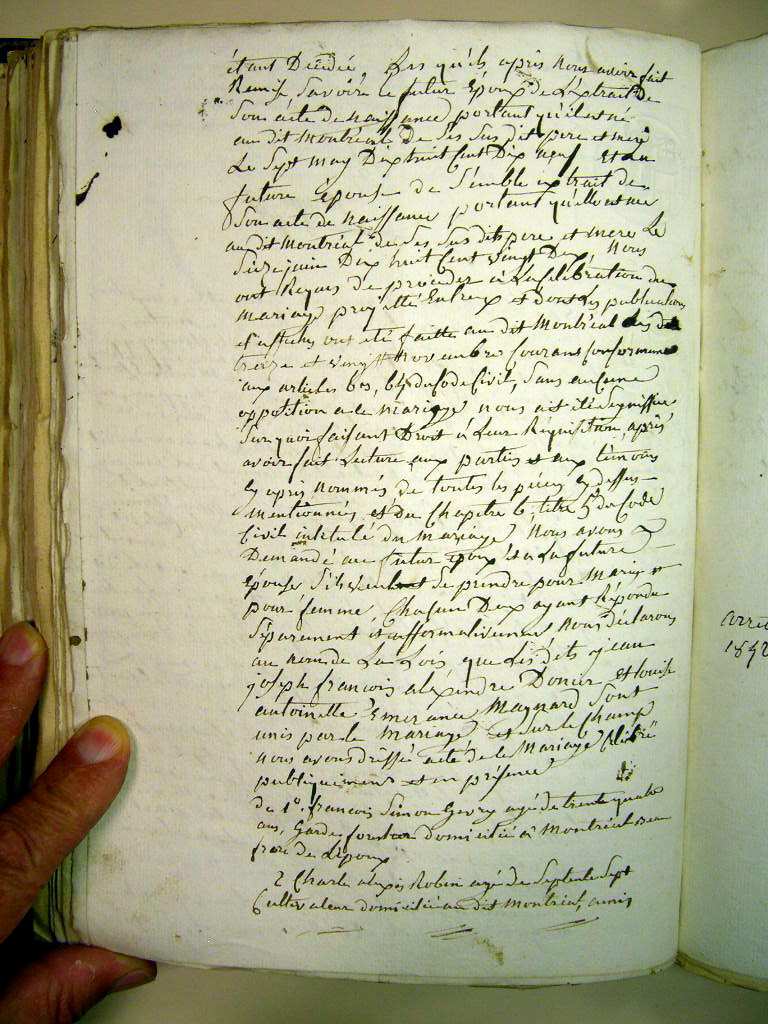 étant Décédée, Lesquels après nous avoir fait
Remise Savoire le futur Epoux de L'Extrait De
Son acte de naissance portant qu'il est né
au dit Montréal de Ses Sus dit pere et mere
Le Sept May Dix huit Cent Dix neuf et La
future Epouse de Semble extrait de
Son acte de naissance portant qu'elle est née
au dit Montréal de Ses Sus dits pere et mere Le
juin Dix huit Cent vingt Deux, Nous
ont Requis de procéder à La Célébration du
Mariage projetté Entreux et dont Les publications
et affiches ont été faittes au dit Montréal Les
treize et vingt novembre Courant Conformement
aux articles 63, 64 du Code Civil, Sans aucune
opposition a le mariage nous ait été Signiffiée
Sur quoi faisant Droit à Leur Réquisition, après
avoir fait Lecture aux parties et aux témoins
Cy après nommés de toutes les pièces Cy dessus
Mentionnées et Du Chapitre 6 titre 5 du Code
Civil intitulé du Mariage, Nous avons
Demandé au futur époux et a La future
Epouse S'ils veulent Se prendre pour Mari et
pour femme, Chacun Deux ayant Répondu
Séparement et affirmativement Nous déclarons
au nom de La Loi, que Les dits jean
joseph françois aléxendre Donier et Louise
antoinette Emerance Maynard Sont
unis par le Mariage et Sur le Champ
nous avons dressé acte de le Mariage Célébré
publiquement et en présence
de 1°. françois Simon Gevry agé de trente quatre
ans, Garde forestier domicilié à Montréal beau
frere de L'époux
2 Charle alexis Robin agé de Septente Sept
Cultivateur domicilié au dit Montréal, amis
1842